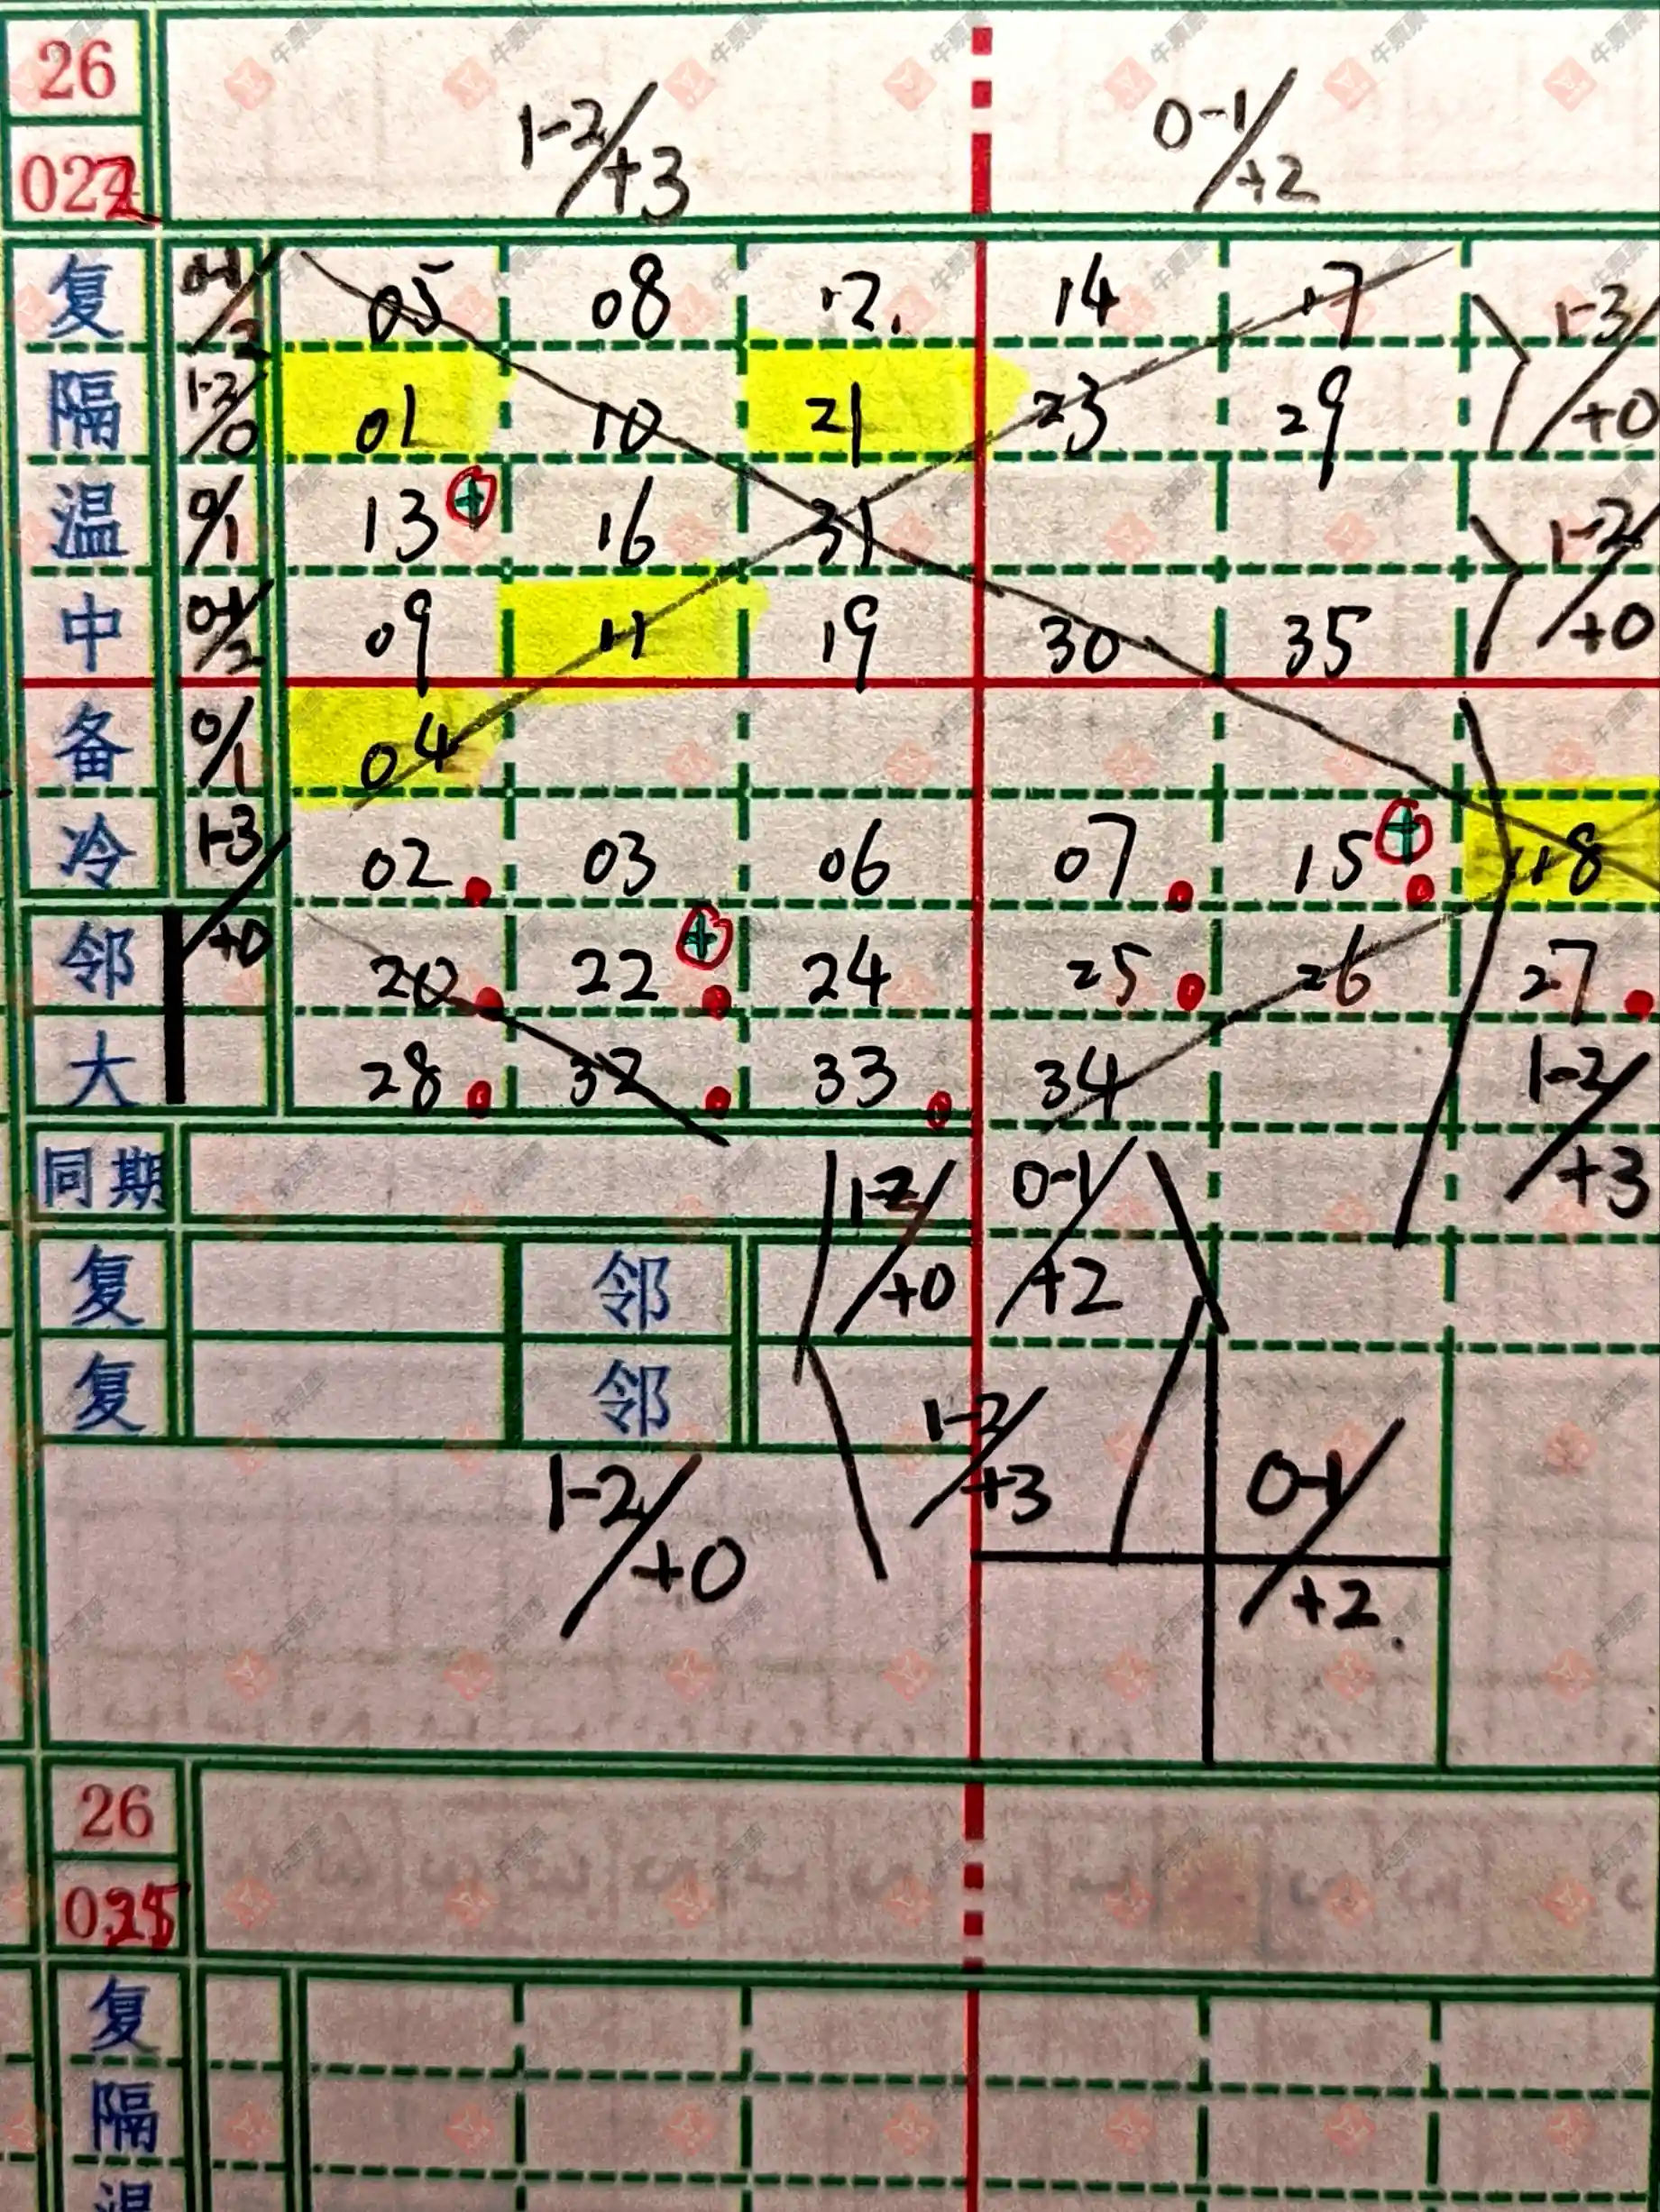 26
1-2/+3 0-1/+2
022
复 0-1/2 05 08 12. 14 17 1-3/+0
隔 1-3/0 01 10 21 23 29
温 0/1 13 + 16 31 1-2/+0
中 0-1/2 09 11 19 30 35
备 0/1 04
冷 1-3/+0 02 03 06 07 15 + 18
邻 20 22 + 24 25 26 27
大 28 32 33 34 1-2/+3
同期 1-2/+0 0-1/+2
复 邻
复 邻 1-2/+3
1-2/+0 0-1/+2.
26
025
复
隔
温
牛票票